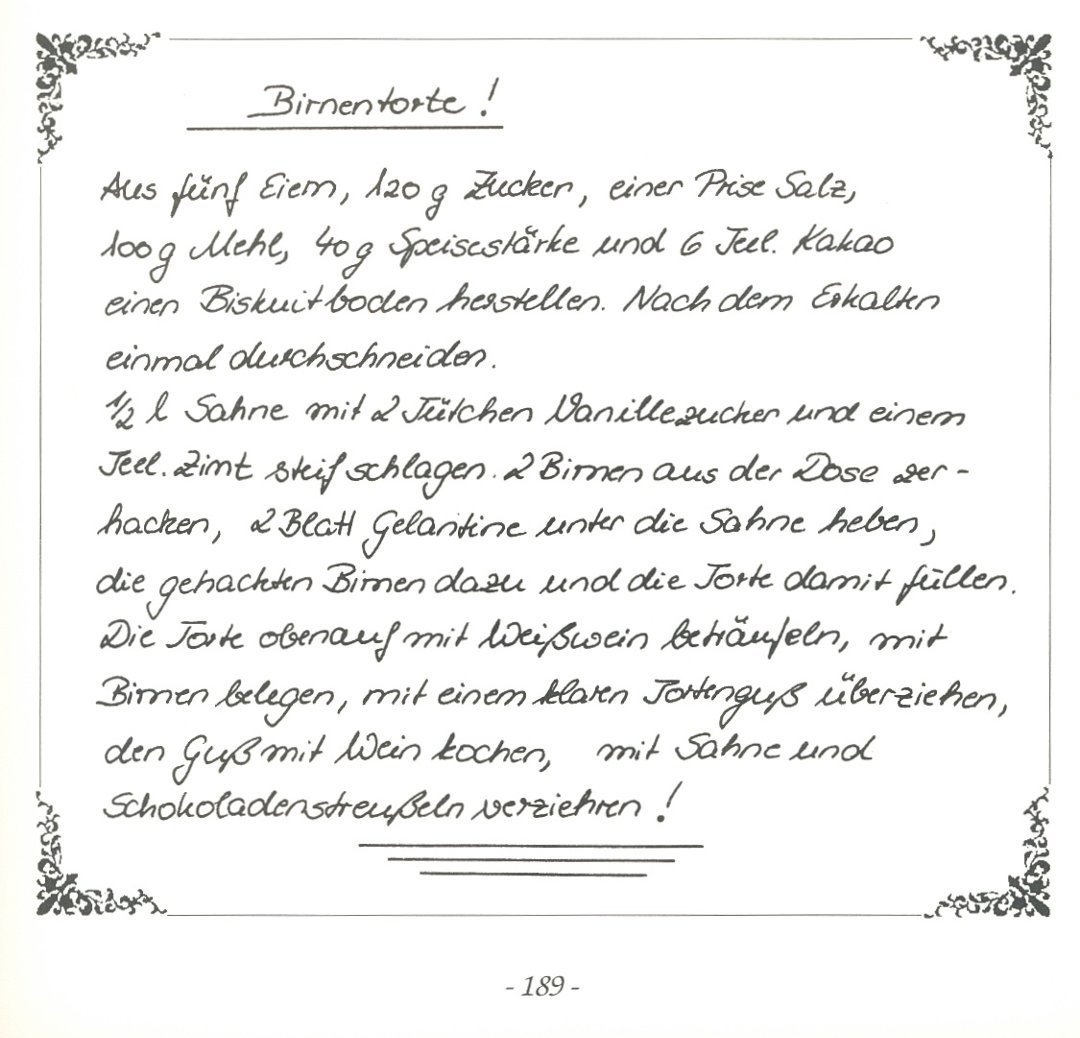 Birnentorte !
Aus fünf Eiern, 120 g Zucker, einer Prise Salz,
100 g Mehl, 40 g Speisestärke und 6 Teel. Kakao
einen Biskuitboden herstellen. Nach dem Erkalten
einmal durchschneiden.
1/2 l Sahne mit 2 Tütchen Vanillezucker und einem
Teel. Zimt steif schlagen. 2 Birnen aus der Dose zer-
hacken, 2 Blatt Gelantine unter die Sahne heben,
die gehackten Birnen dazu und die Torte damit füllen.
Die Torte obenauf mit Weißwein beträufeln, mit
Birnen belegen, mit einem klaren Tortenguß überziehen,
den Guß mit Wein kochen, mit Sahne und
Schokoladenstreußeln verziehren !
- 189 -